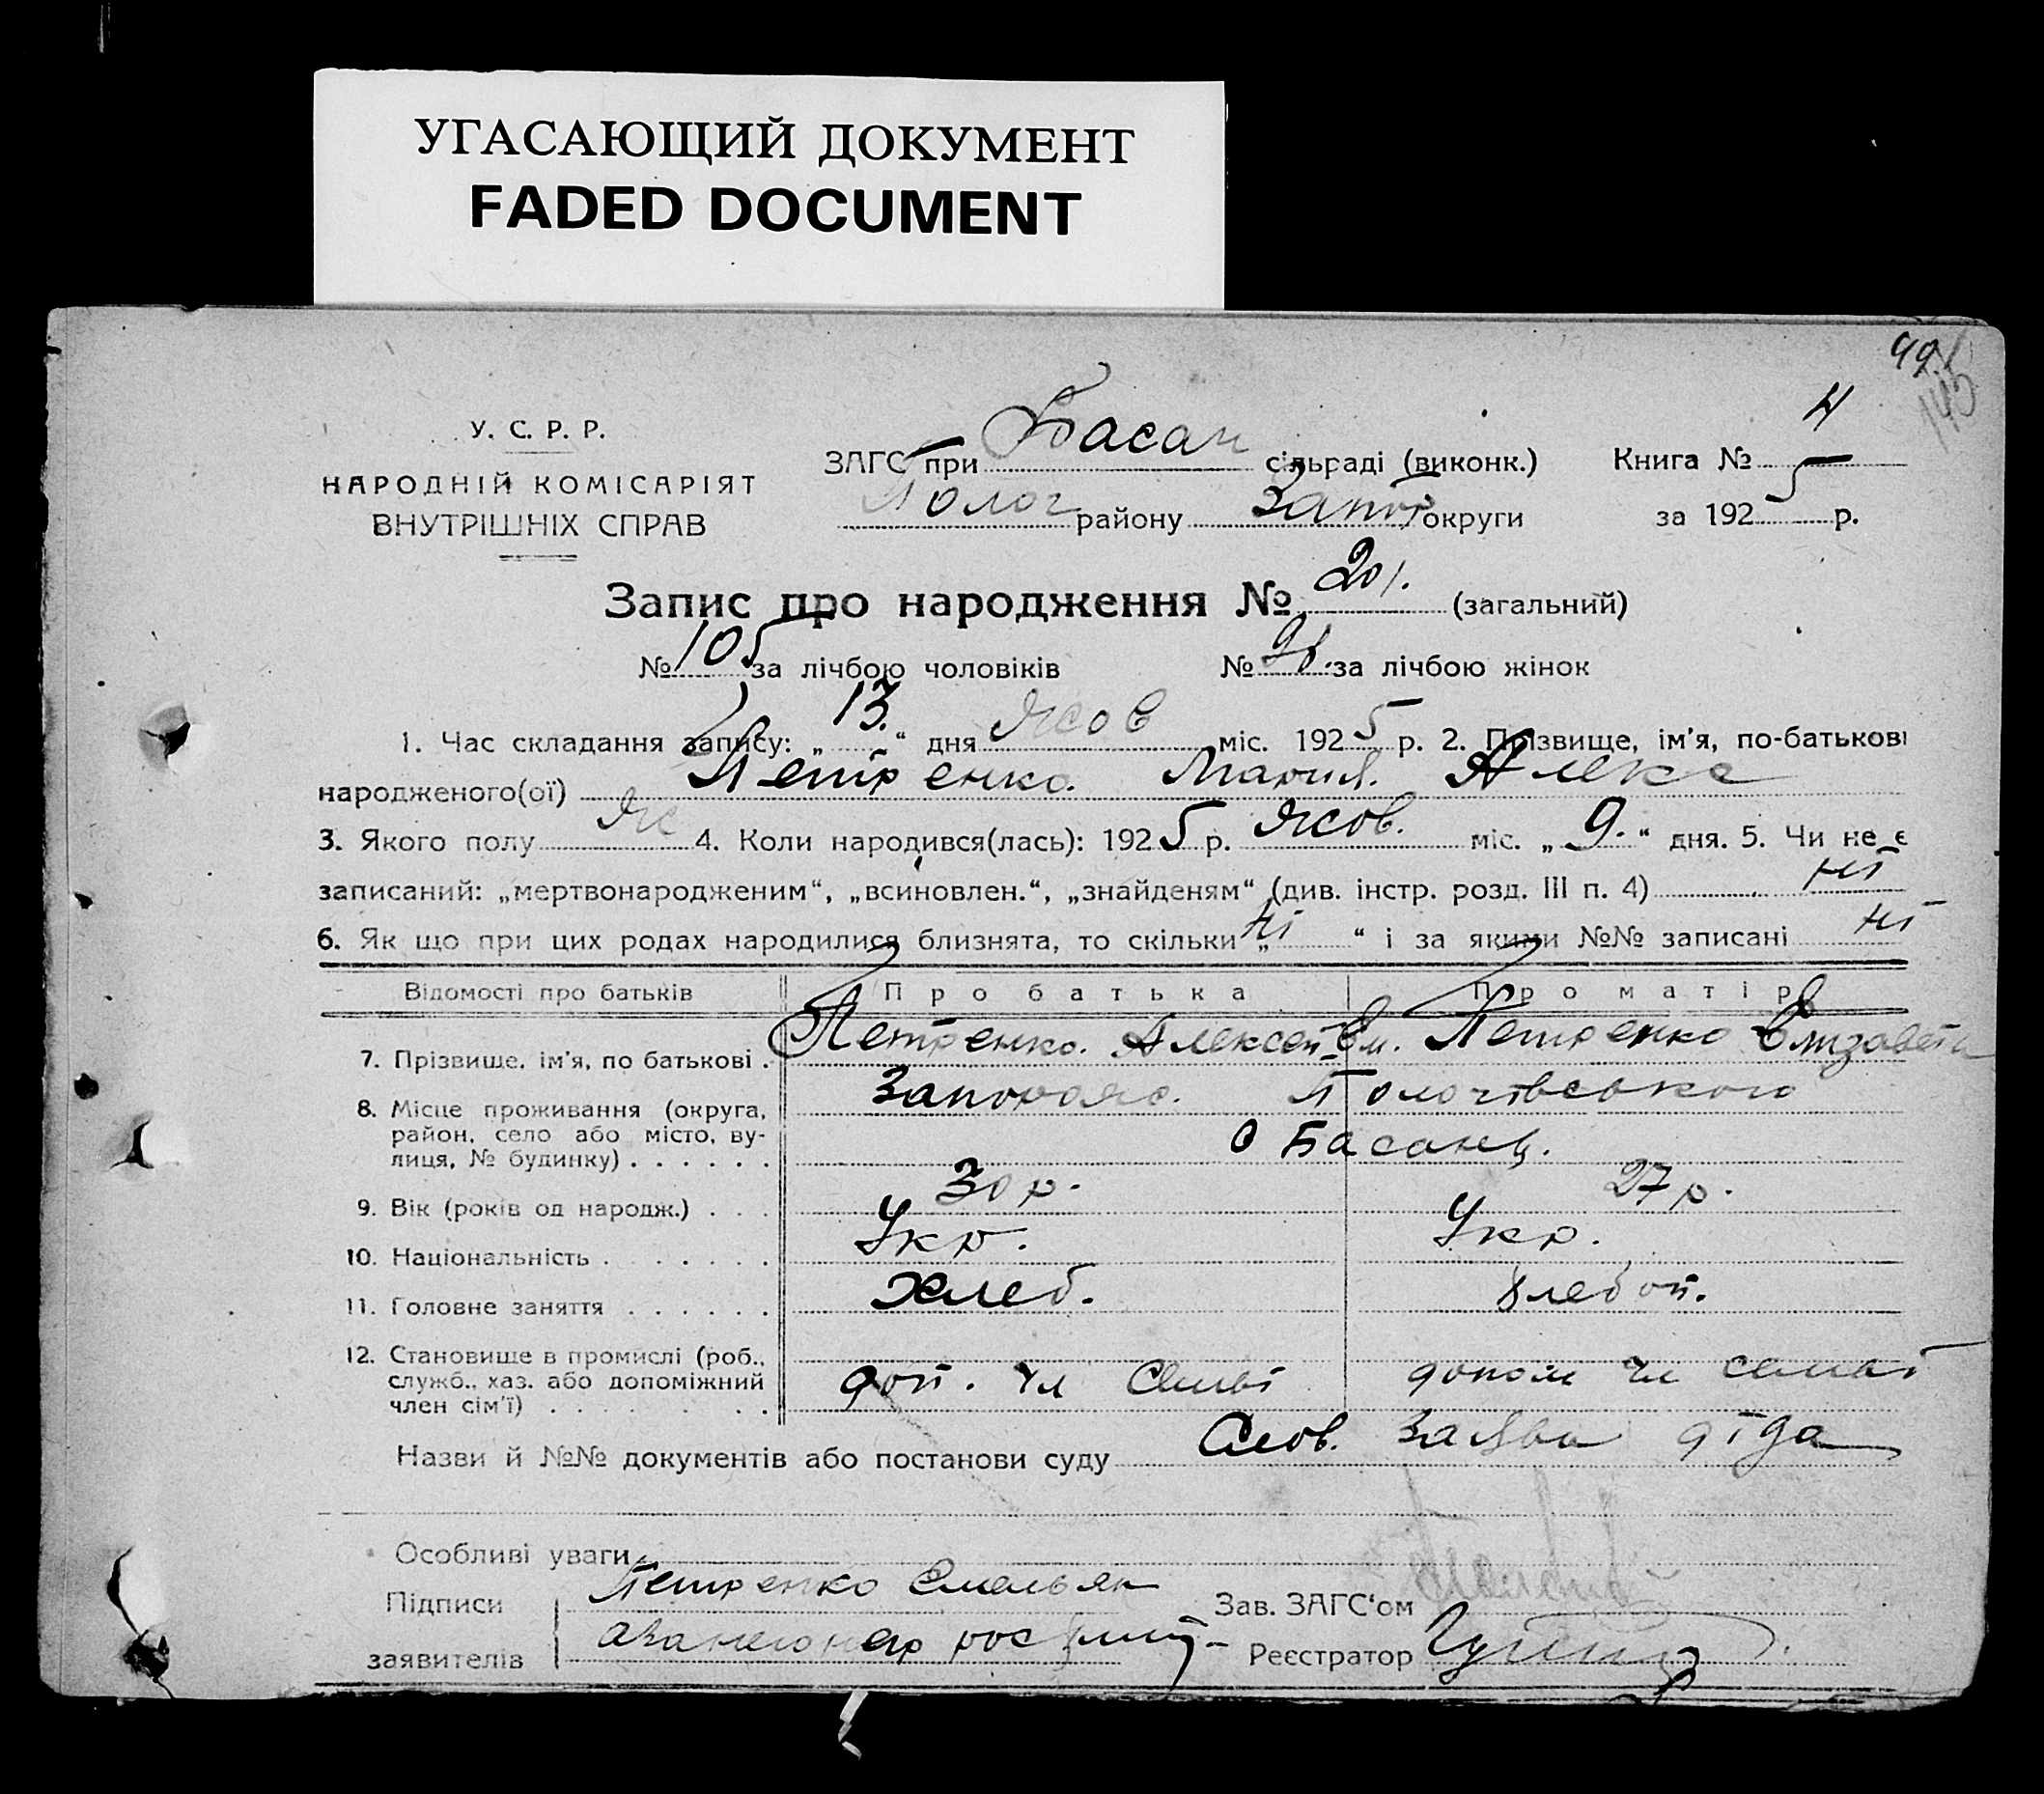 УГАСАЮЩИЙ ДОКУМЕНТ
FADED DOCUMENT
99
145
У. С. Р. Р.
НАРОДНІЙ КОМІСАРІЯТ
ВНУТРІШНІХ СПРАВ
ЗАГС при Басан сільраді (виконк.) Книга № 4
Полог району Запор округи за 1925 р.
Запис про народження № 201. (загальний)
№ 105 за лічбою чоловіків № 96. за лічбою жінок
1. Час складання запису: „13." дня Жов міс. 1925 р. 2. Прізвище, ім'я, по-батькові
народженого(ої) Петренко. Мария. Алекс
3. Якого полу Ж 4. Коли народився(лась): 1925 р. Жов. міс. „9." дня. 5. Чи не є
записаний: „мертвонародженим", „всиновлен.", „знайденям" (див. інстр. розд. III п. 4) ні
6. Як що при цих родах народилися близнята, то скільки „ні" і за якими №№ записані ні
Відомості про батьків Про батька Про матір
7. Прізвище, ім'я, по батькові . Петренко. Алексей Ем. Петренко Елизавета
8. Місце проживання (округа, Запорож. Пологівського
район, село або місто, ву- с Басань
лиця, № будинку) . . . . . .
9. Вік (років од народж.) . . . 30 р. 27 р.
10. Національність . . . . . . . Укр. Укр.
11. Головне заняття . . . . . . Хлеб. Хлебоп.
12. Становище в промислі (роб.,
служб., хаз. або допоміжний доп. чл семьі допом чл семьі
член сім'ї) . . . . . . . .
Назви й №№ документів або постанови суду Слов. заява діда
Особливі уваги
Підписи Петренко Емельян Зав. ЗАГС'ом
заявителів Реєстратор